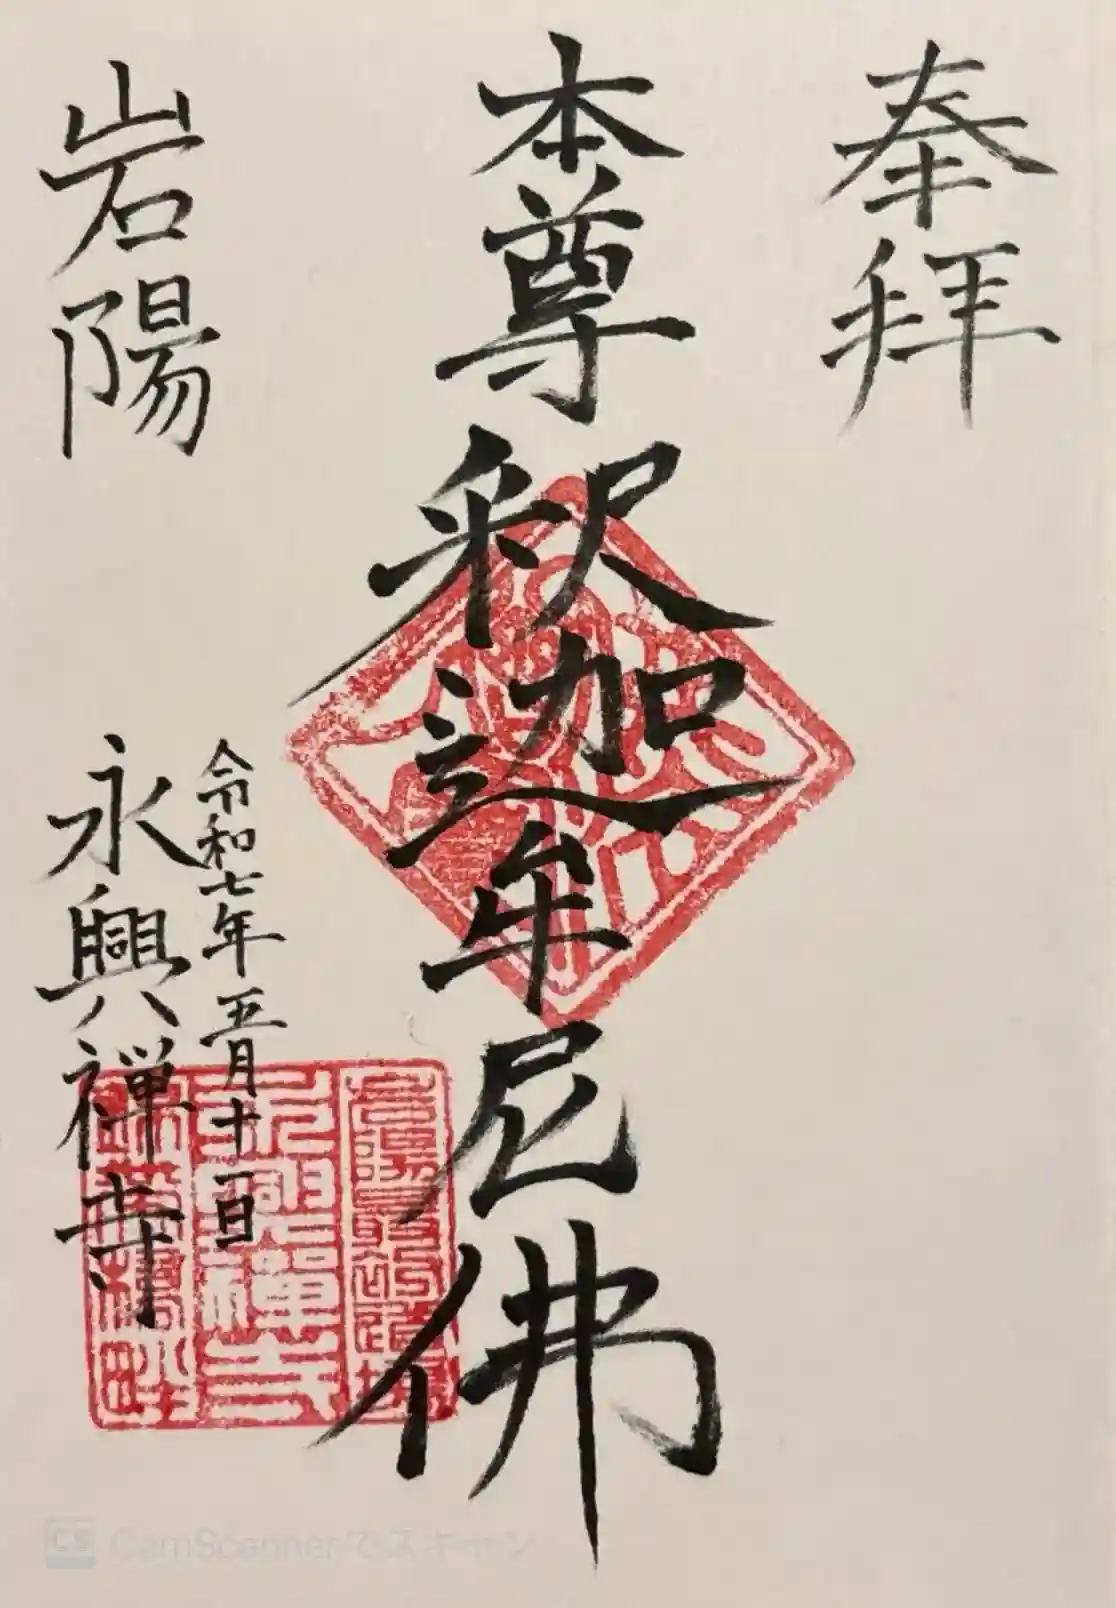 奉拝
本尊釈迦牟尼佛
令和七年五月十一日
岩陽
永興禅寺
永興禅寺
CamScannerでスキャン